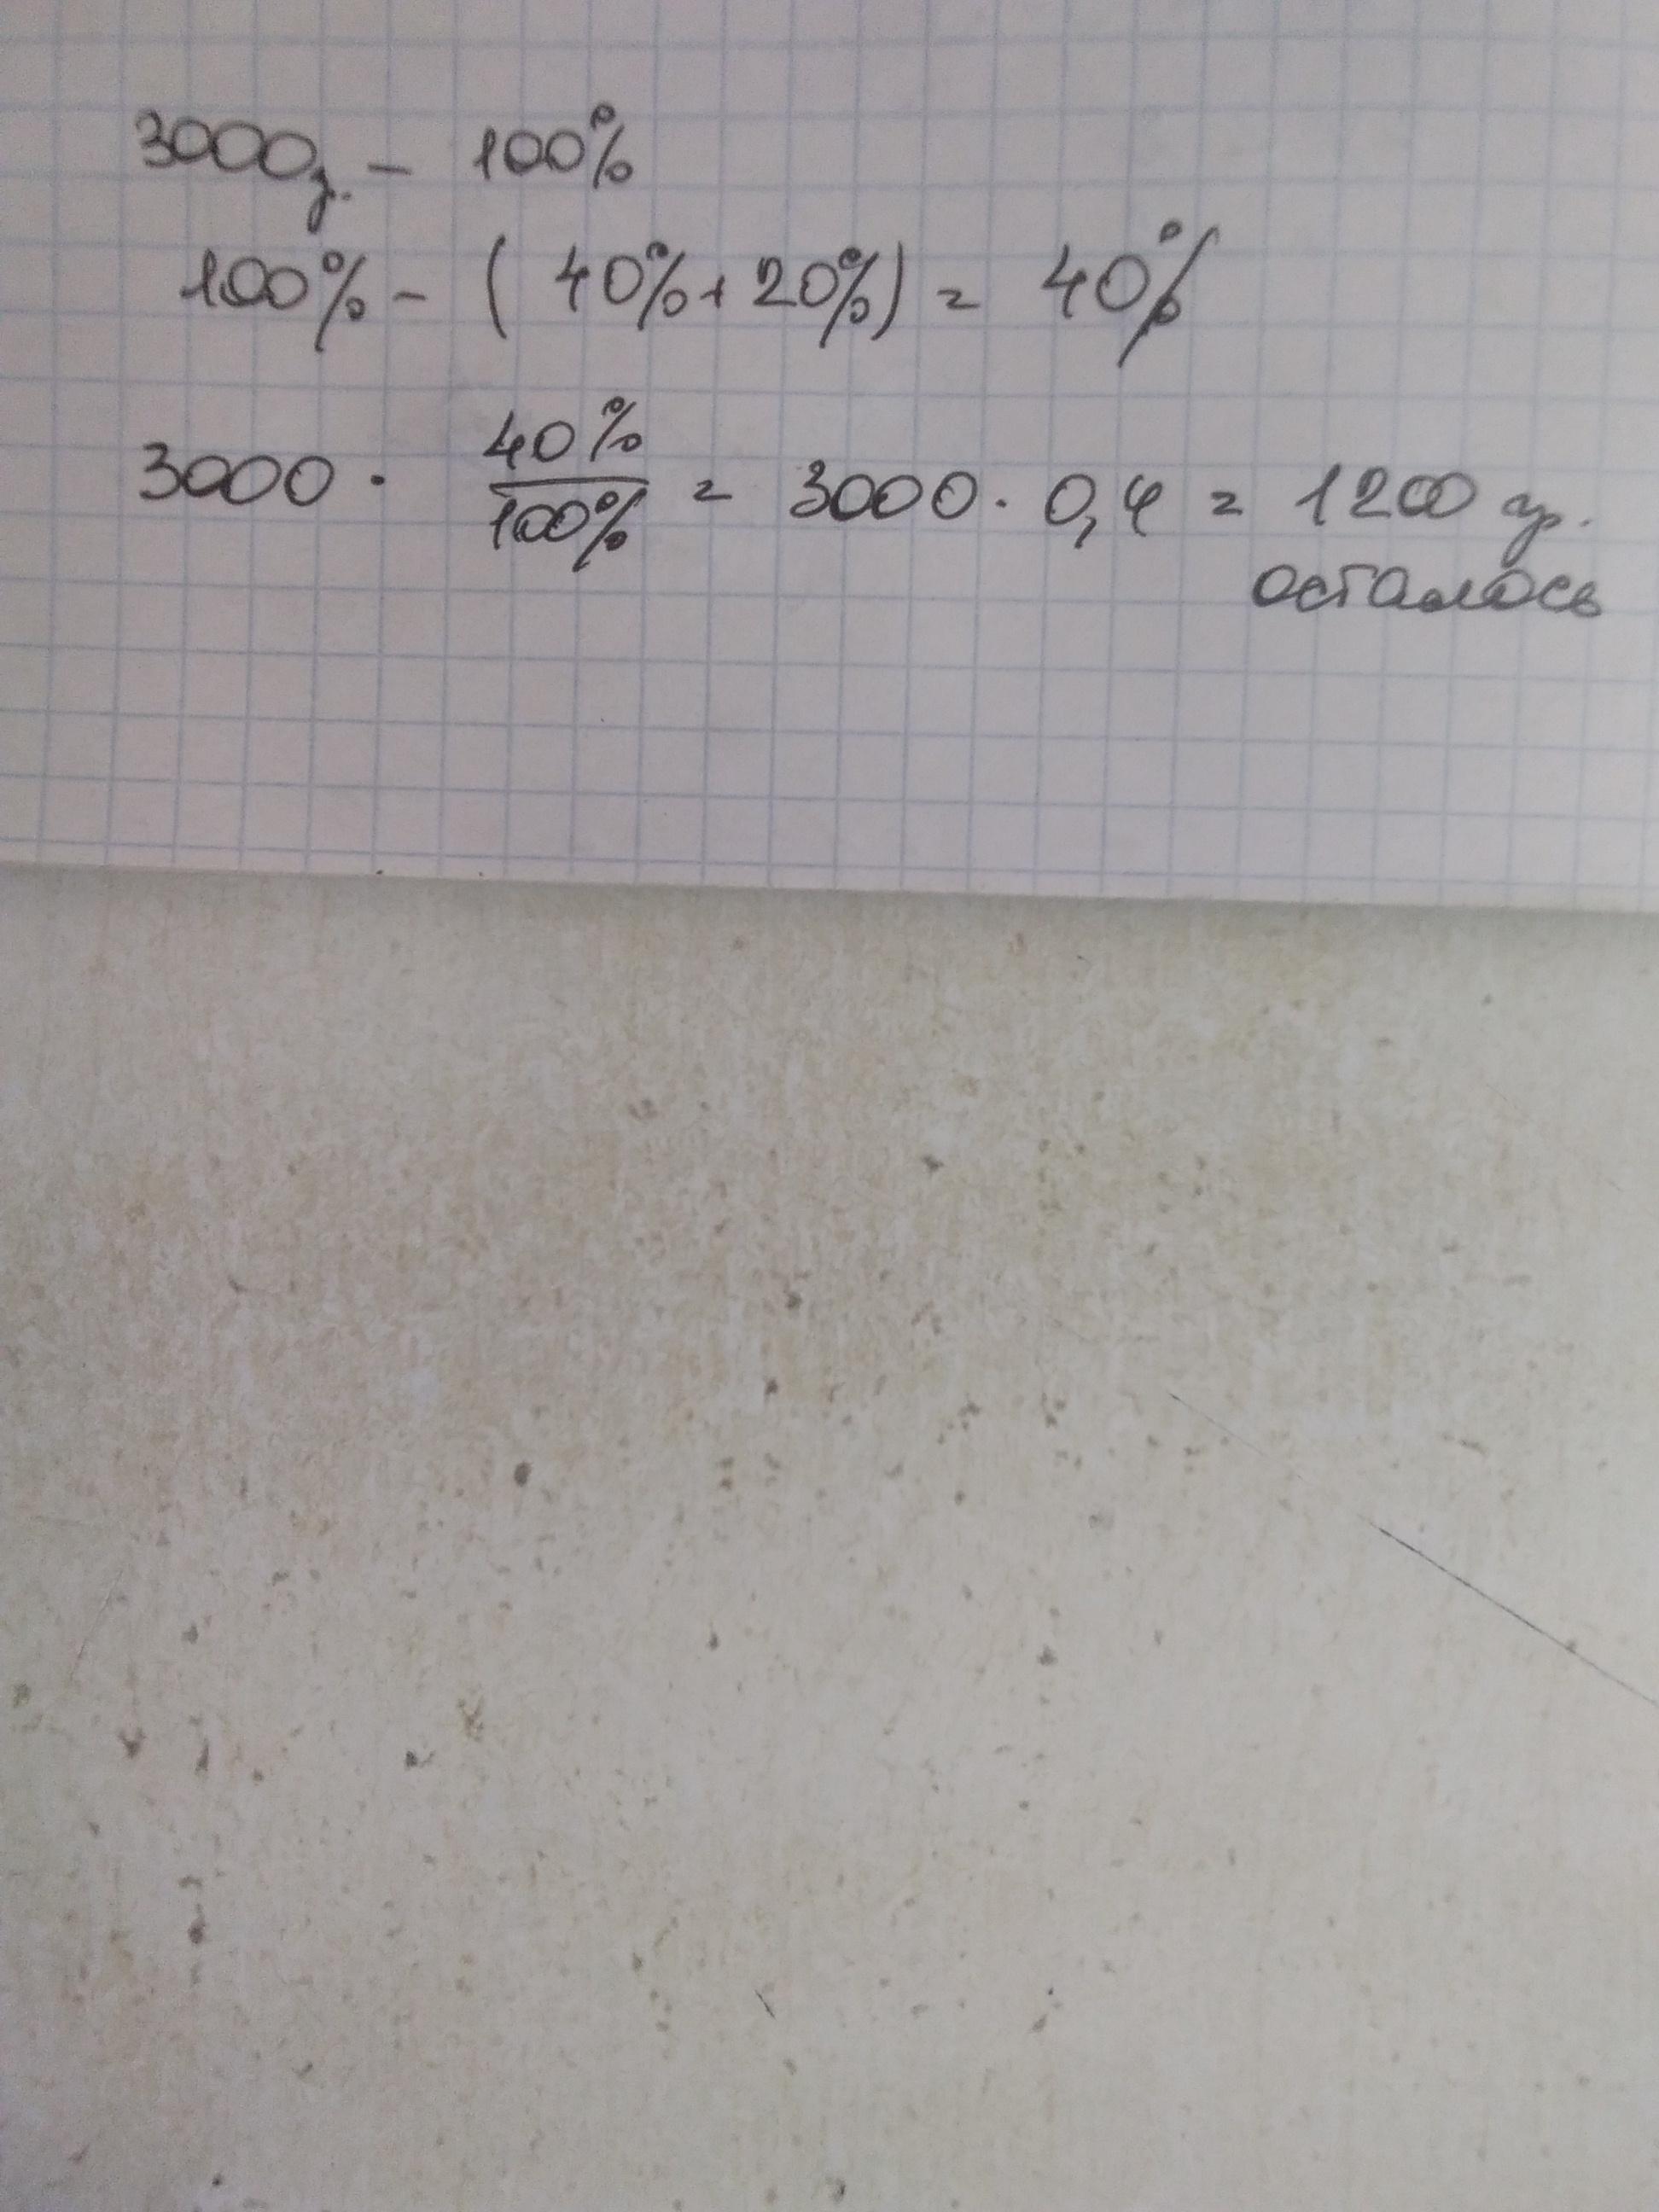 3000г. - 100%
100% - ( 40% + 20%) = 40%
3000 · 40%/100% = 3000 · 0,4 = 1200 гр.
осталось